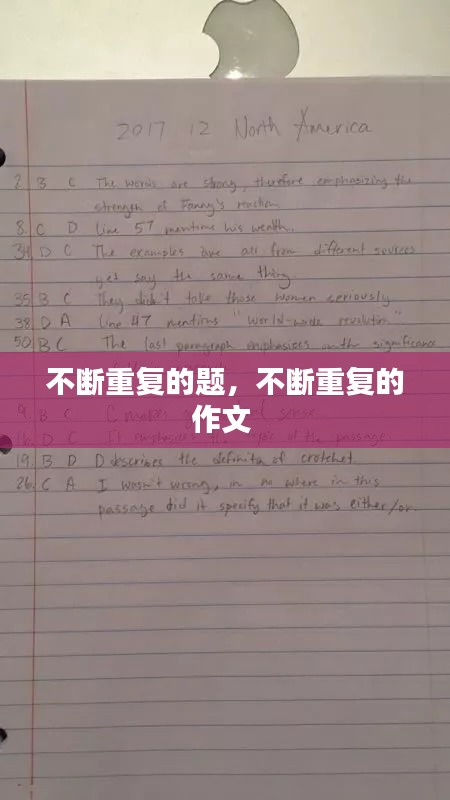 2017 12 North America
2. B C The words are strong, therefore emphasizing the
strength of Fanny's reaction
8. C D Line 57 mentions his wealth.
34. D C The examples are all from different sources
yes say the same thing.
35. B C They didn't take those women seriously
38. D A line 47 mentions "World-wide revolution"
50. B C The last paragraph emphasizes on the significance
不断重复的题，不断重复的
作文
9. B C C makes sense
D C of the passage
19. B D D describes the definition of crotchet
26. C A I wasn't wrong, in no where in this
passage did it specify that it was either/or.